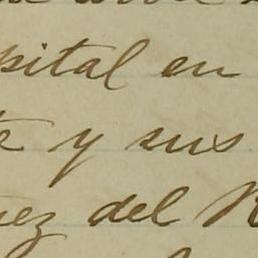 pital en
e y sus
ez del R